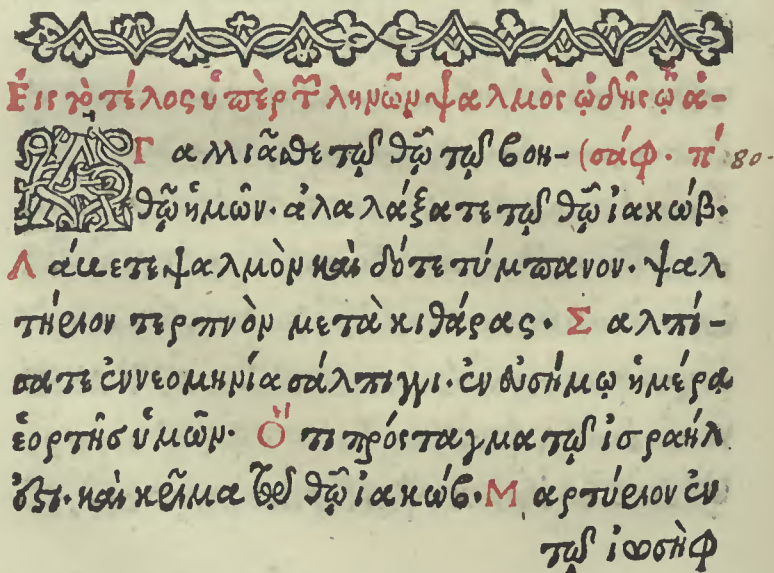 Εἰς τὸ τέλος ὑπὲρ τ̄ ληνῶν ψαλμὸς ᾠδῆς ᾧ ἀ-
ΑΓαλλιᾶσθε τῷ θῷ τῷ βοη- (σάφ. π΄ 80-
θῷ ἡμῶν. ἀλαλάξατε τῷ θῷ ἰακώβ.
Λάβετε ψαλμὸν καὶ δότε τύμπανον. ψαλ
τήριον τερπνὸν μετὰ κιθάρας. Σαλπί-
σατε ἐν νεομηνία σάλπιγγι. ἐν εὐσήμῳ ἡμέρα
ἑορτῆς ὑμῶν. Ὅτι πρόσταγμα τῷ ἰσραήλ
ἐστι. καὶ κρῖμα τῷ θῷ ἰακώβ. Μαρτύριον ἐν
τῷ ἰωσὴφ